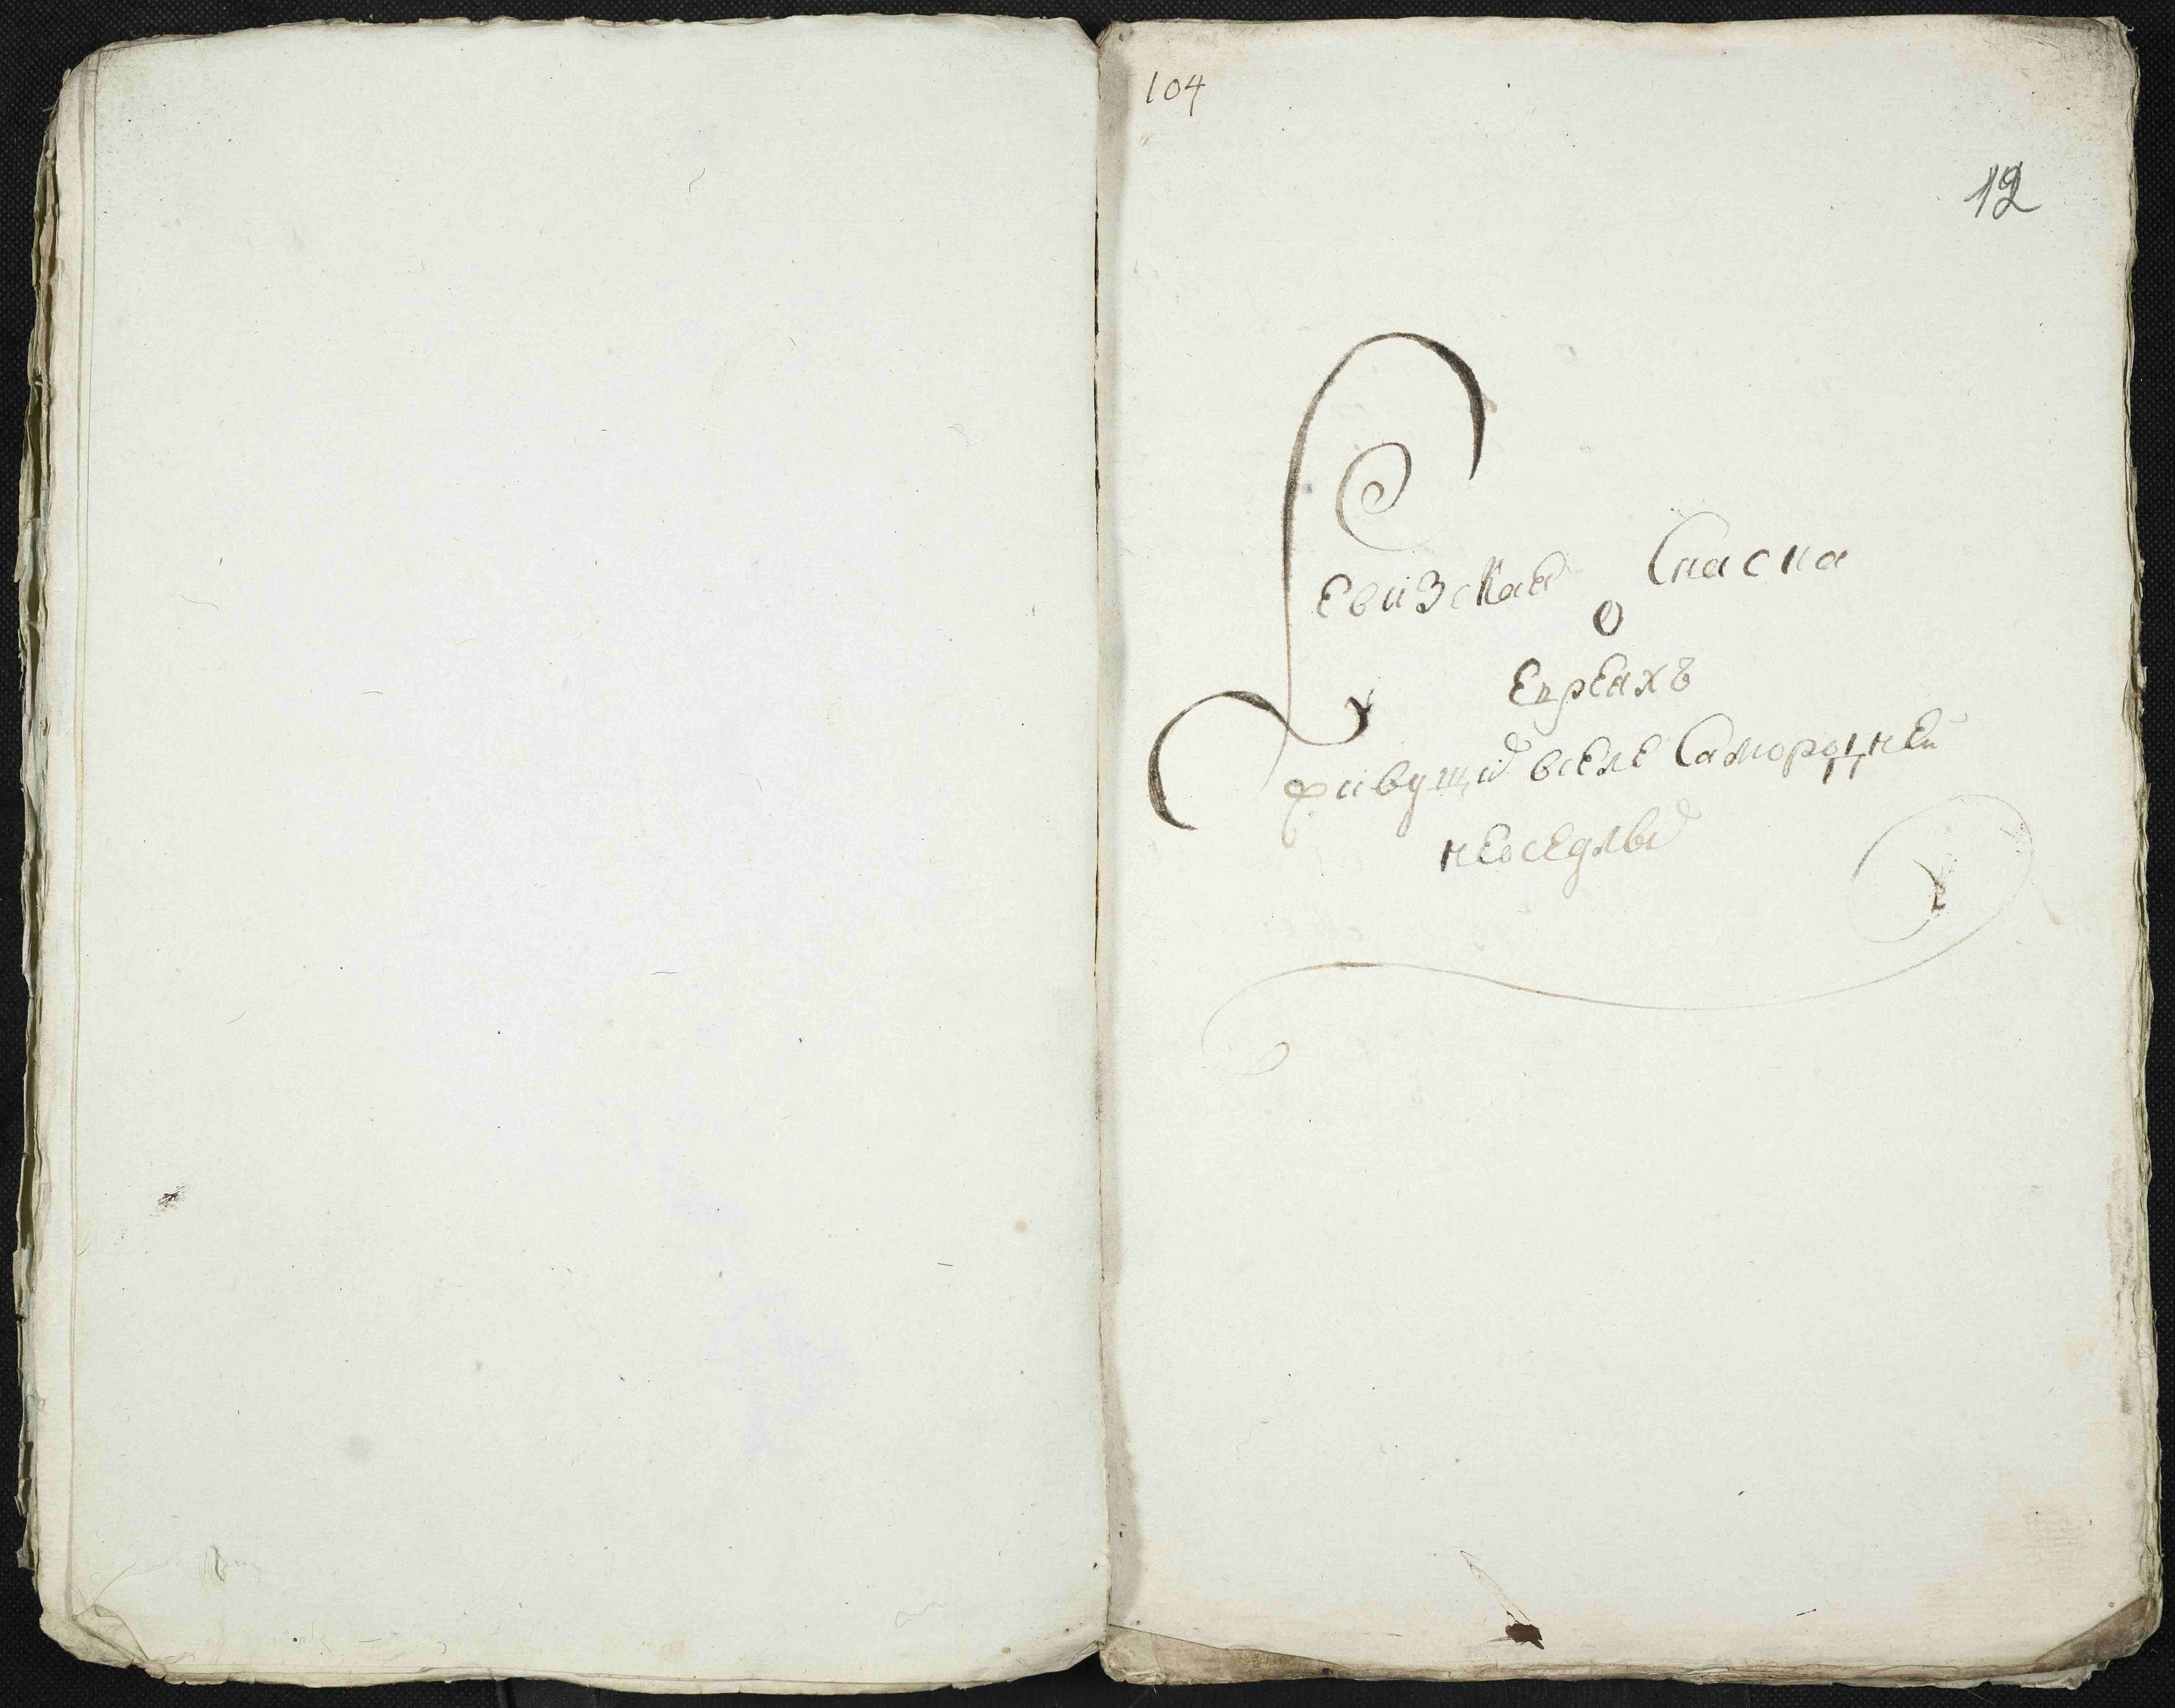 104
12
Ревизская Сказка
о
Евреяхъ
живущих вселе Самородней
неоседлых